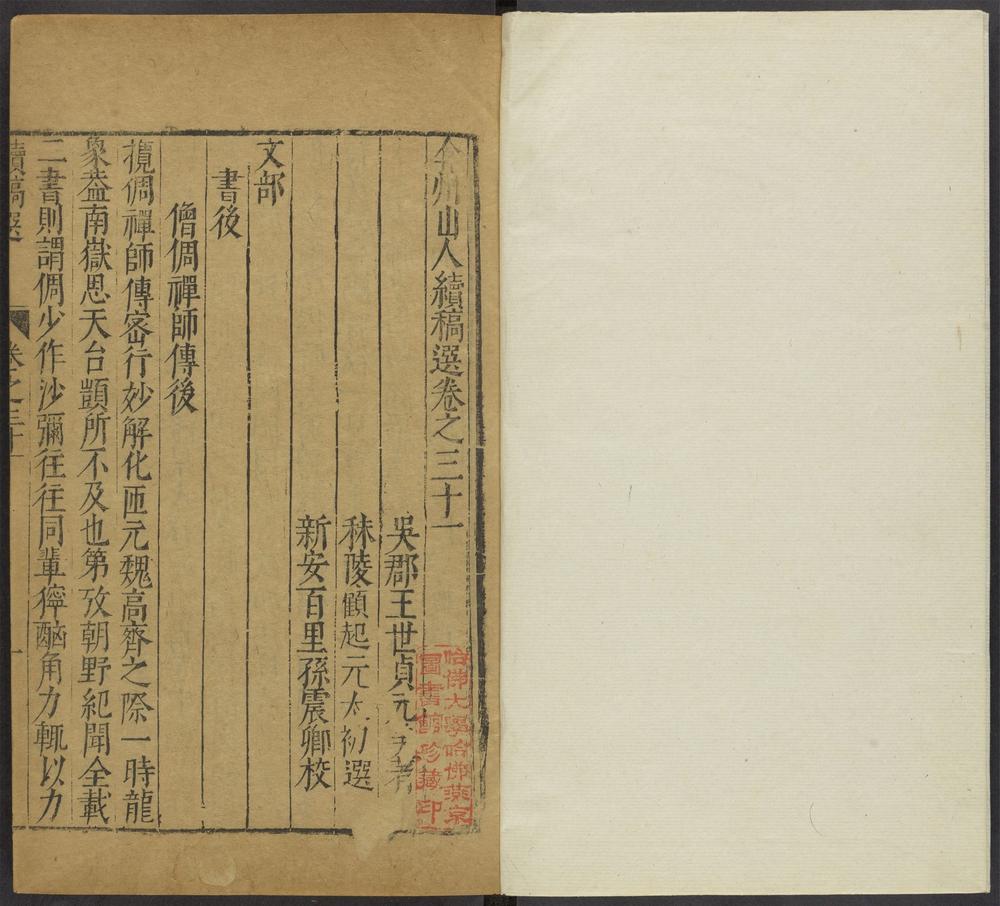 弇州山人續稿選卷之三十一
吳郡王世貞元美著
秣陵顧起元太初選
新安百里孫震卿校
文部
書後
僧倜禪師傳後
攬倜禪師傳密行妙解化匝元魏高齊之際一時龍
象益南嶽思天台顗所不及也第攷朝野紀聞全載
二書則謂倜少作沙彌往往同輩獰酗角力輒以力
續稿選
卷之三十一
一
哈佛大學哈佛燕京
圖書館珍藏印